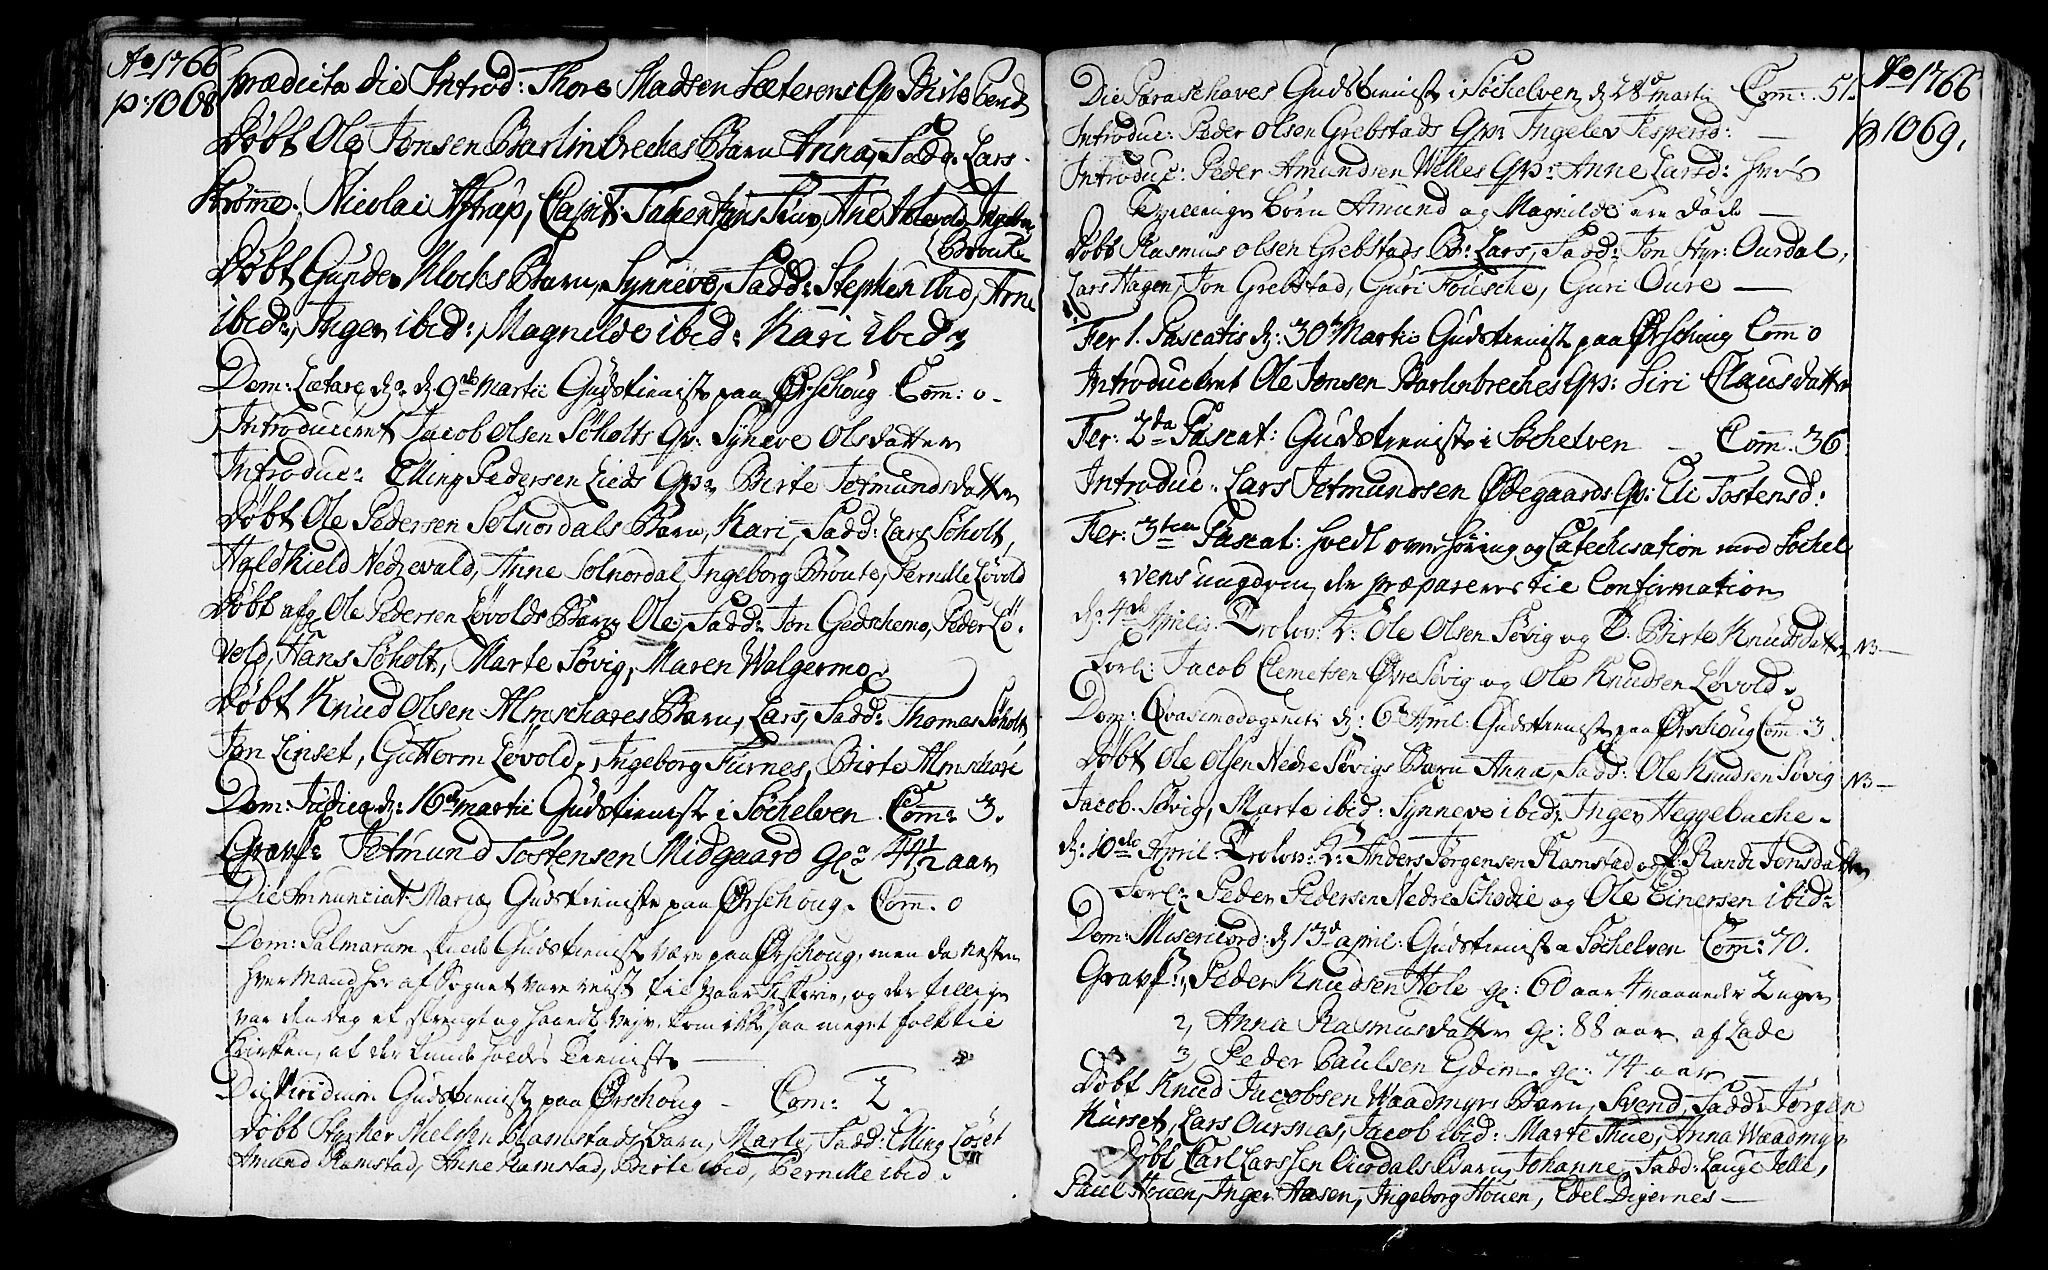 Ao 1766
p: 1068
Prædicta die Introd: Thore Madsen Sæterens Qv: Birte Bend
Døbt Ole Jonsen Barlinbreches Barn Anna, Fadd: Lars
Strømme, Nicolai Astrup, Capit: Ane Aslevold, Ingebor
Broute
Døbt Gunder Klochs Barn, Synneve, Fadd: Stephen ibid, Arne
ibid:, Inger ibid:, Magnilde ibid: Kari ibid:
Dom: Lætare d: 9de Martii Gudstieniste paa Ørschoug Com: 0
Introduceret Jacob Olsen Søholts Qv: Syneve Olsdatter
Introduc: Elling Pedersen Lieds Qv: Birte Jetmundsdatter
Døbt Ole Pedersen Solnordals Barn, Kari, Fadd: Lars Søholt,
Haldkield Nedrevald, Anne Solnordal, Ingeborg Broute, Pernille Løvold
Døbt afg Ole Pedersen Løvolds Barn Ole, Fadd: Jon Gedschemo, Peder Lø-
vold, Hans Søholt, Marte Søvig, Maren Walgermo
Døbt Knud Olsen Almschares Barn, Lars, Fadd: Thomas Søholt,
Jon Linset, Guttorm Løvold, Ingeborg Furnes, Birte Almschare
Dom: Judica d: 16de martii Gudstienist i Søchelven Com: 3.
Gravf: Jetmund Tostensen Midgaard gl: 44½ aar
Die Annunciat: Mariæ Gudstieniste paa Ørschoug. Com. 0
Dom: Palmarum skulde Gudstienist være paa Ørschoug, men da nesten
hver mand her af Sognet vare reist til Vaar Fisterie, og der tillige
var den dag et strengt og haardt Vejr, kom ikke saa meget folk til
Kirken, at der kunde holdes Tieniste
Die Viridium Gudstienist paa Ørschoug - Com: 2
Døbt Styrker Nielssen Ramstads Barn, Marte, Fadd: Elling Løset
Amund Ramstad, Anne Ramstad, Birte ibid, Pernille ibid.
Ao 1766
p 1069.
Die Parascheves Gudstienist i Søchelven d 28de martii Com: 51.
Introduc: Peder Olsen Grebstads Qv: Ingelev Jespersd:
Introduc: Peder Amundsen Welles Qv: Anne Larsd: hvis
Tvillinge børn Amund og Magnilde ere døde
Døbt Rasmus Olsen Grebstads B: Lars, Fadd: Jon Ourdal,
Lars Hagen, Jon Grebstad, Guri Fousche, Guri Oure
Fer 1. Pascatis d: 30te Martii Gudstienist paa Ørschoug Com 0
Introduceret Ole Jonsen Barlinbreches Qv: Siri Clausdatter
Fer: 2da Pascat: Gudstieniste i Søchelven - Com. 36
Introduc: Lars Jetmundsen Ødegaards Qv: Eli Tostensd:
Fer: 3tia Pascat: holdt overhøring og Catechisation med Søchel
vens ungdom, der præpareres til Confirmation
d: 4de Aprilis. Trolov: K: Ole Olsen Søvig og P. Birte Knudsdatter NB
Forl: Jacob Clemetsen Øvre Søvig og Ole Knudsen Løvold.
Dom: Qvasimodogeniti d: 6te April: Gudstienist paa Ørschoug Com: 3.
Døbt Ole Olsen Nedre Søvigs Barn Anna, Fadd: Ole Knudsen Søvig NB
Jacob Søvig, Marte ibid: Synneve ibid, Inger Heggebache.
d: 10de April. Trolov: K: Anders Jørgensen Ramstad og P: Randi Jonsdatter
Forl: Peder Pedersen Nedre Schodie og Ole Einersen ibid:
Dom: Misericord: d 13de april: Gudstienist i Søchelven Com: 70.
Gravf: 1, Peder Knudsen Hole gl: 60 aar 4 maaneder 2 uger
2, Anna Rasmusdatter gl: 88 aar af Lade
3, Peder Paulsen Eidem gl: 74 aar
Døbt Knud Jacobsen Waadmyrs Barn, Svend, Fadd: Jørgen
Hurset, Lars Oursnes, Jacob ibid: Marte Thue, Anna Waadmyr
Døbt Carl Larssen Barn, Johanne, Fadd: Lauge Jelle,
Paul Houen, Inger Aasen, Ingeborg Houen, Edel Digernes